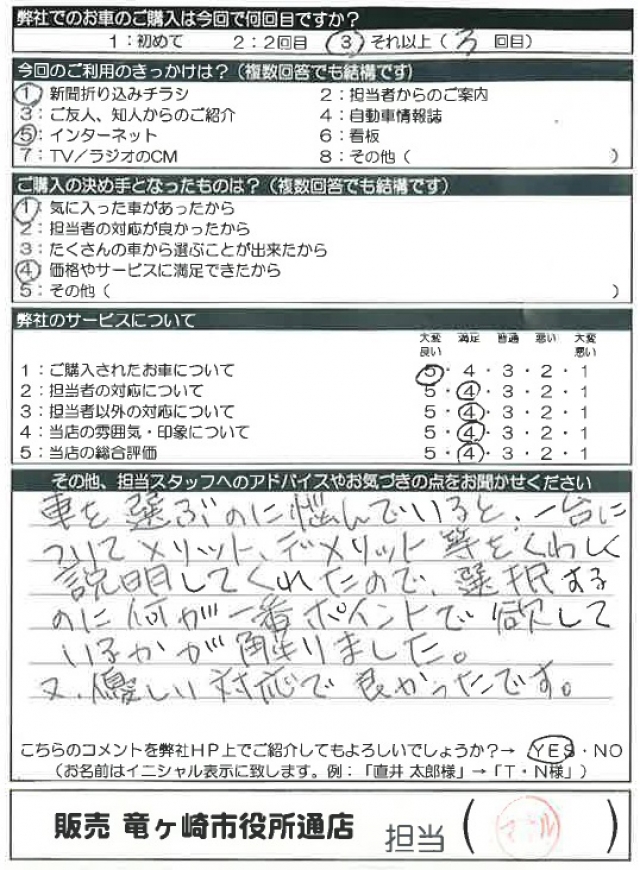 弊社でのお車のご購入は今回で何回目ですか？
1：初めて 2：2回目 3 それ以上（ 3 回目）
今回のご利用のきっかけは？（複数回答でも結構です）
1：新聞折り込みチラシ 2：担当者からのご案内
3：ご友人、知人からのご紹介 4：自動車情報誌
5：インターネット 6：看板
7：TV／ラジオのCM 8：その他（ ）
ご購入の決め手となったものは？（複数回答でも結構です）
1：気に入った車があったから
2：担当者の対応が良かったから
3：たくさんの車から選ぶことが出来たから
4：価格やサービスに満足できたから
5：その他（ ）
弊社のサービスについて
大変良い 満足 普通 悪い 大変悪い
1：ご購入されたお車について 5・4・3・2・1
2：担当者の対応について 5・4・3・2・1
3：担当者以外の対応について 5・4・3・2・1
4：当店の雰囲気・印象について 5・4・3・2・1
5：当店の総合評価 5・4・3・2・1
その他、担当スタッフへのアドバイスやお気づきの点をお聞かせください
車を選ぶのに悩んでいると、一台に
ついてメリット、デメリット等をくわしく
説明してくれたので、選択する
のに何が一番ポイントで欲して
いるかが解りました。
又、優しい対応で良かったです。
こちらのコメントを弊社HP上でご紹介してもよろしいでしょうか？→ YES・NO
（お名前はイニシャル表示に致します。例：「直井 太郎様」→「T・N様」）
販売 竜ヶ崎市役所通店 担当（ ）